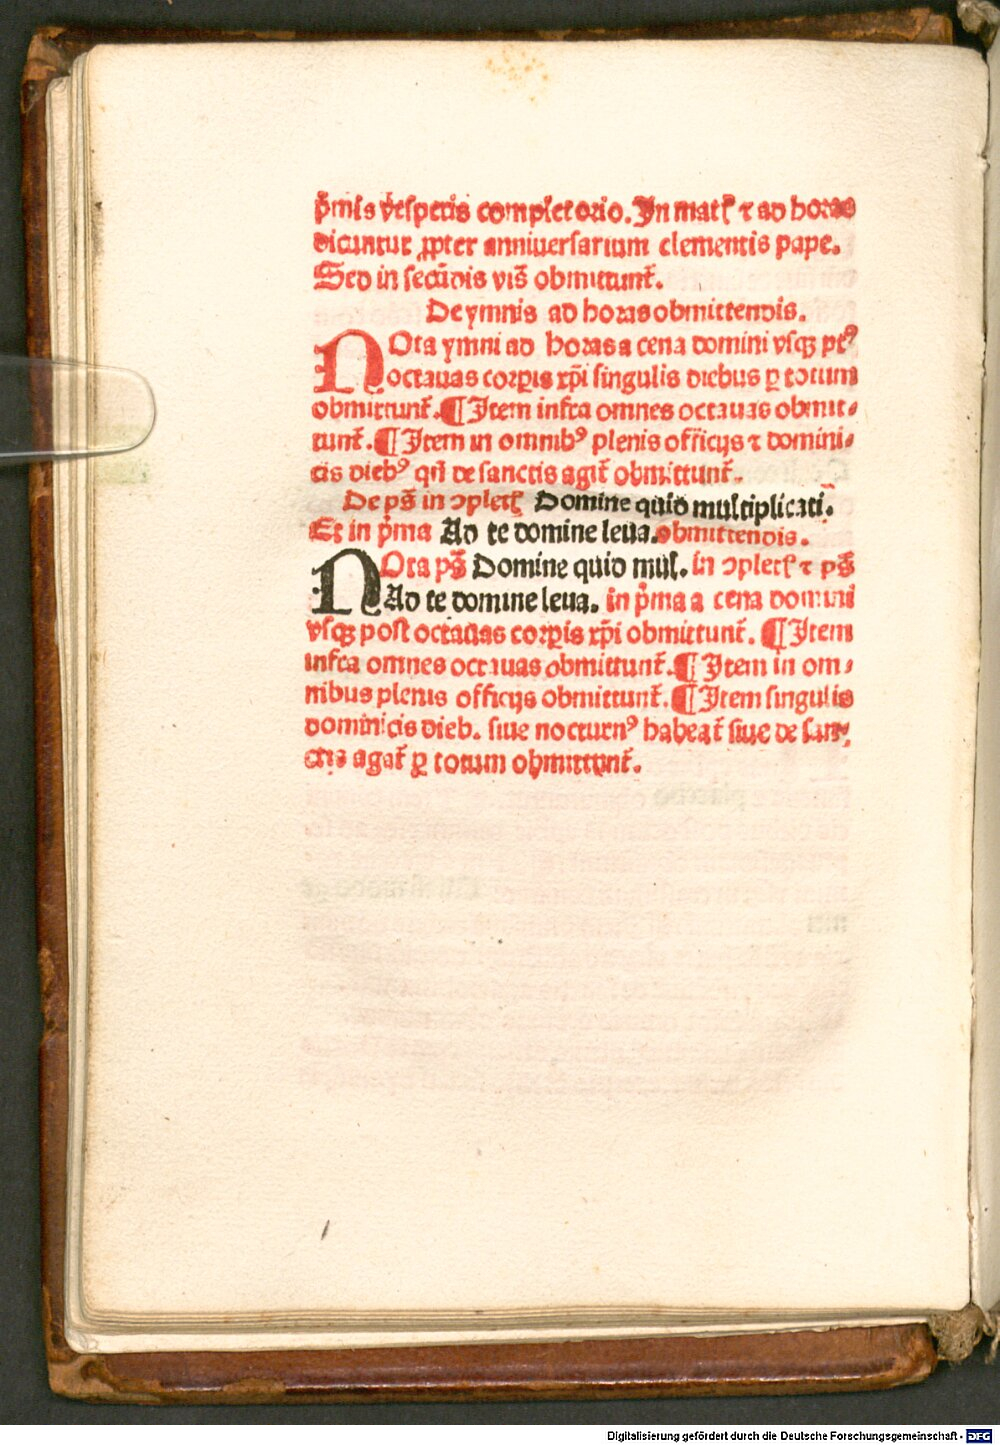 p̄mis v̄esperis completorio. In matꝭ ⁊ ad horas
dicuntur ꝓpter anniuersarium clementis pape.
Sed in secūdis vis̄ obmittunt̄.
De ymnis ad horas obmittendis.
NOta ymni ad horas a cena domini vsqꝫ pꝰ
octauas corꝑis xp̄i singulis diebus ꝑ totum
obmittunt̄. ¶ Item infra omnes octauas obmit⸗
tunt̄. ¶ Item in omnibꝰ plenis officijs ⁊ domini⸗
cis diebꝰ qn̄ de sanctis agit̄ obmittunt̄.
De ps̄ in ↄpletꝭ Domine quid multiplicati.
Et in p̄ma Ad te domine leua. obmittendis.
NOta ps̄ Domine quid mul. in ↄpletꝭ ⁊ ps̄
Ad te domine leua. in p̄ma a cena domini
vsqꝫ post octauas corꝑis xp̄i obmittunt̄. ¶ Item
infra omnes octauas obmittunt̄. ¶ Item in om⸗
nibus plenis officijs obmittunt̄. ¶ Item singulis
dominicis dieb. siue nocturnꝰ habeat̄ siue de san⸗
ctis agat̄ ꝑ totum obmittunt̄.
Digitalisierung gefördert durch die Deutsche Forschungsgemeinschaft - DFG